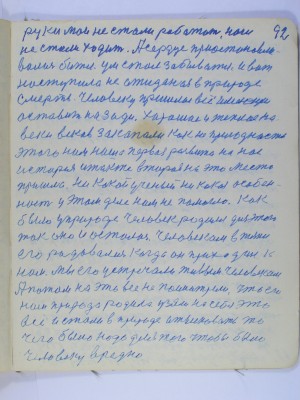 92
руки мои не стали работат, ноги
не стали ходит. А сердце приостановы-
валися битя. ум стал забыватъ. И вот
наступила не ожиданая в природе
смерть. Человеку пришлос всё имеющее
оставит на зади. Харошае и теплое на
веки веков закапали как по природности
этого нам нашэ первое развитие на нас
история и также вторая на это место
пришла. Ни какой ученый ни кака особен-
ност у этом деле нам не помогло. Как
было у природе человек родился для этого
так оно и осталося. Человекам в тяжи
его назвалися. Когда он приходил к
нам мы его устречали живым человекам
А потом на это все не посмотрели, что есть
нам природа родила взяли на себя это
всё и стали в природе отвыковать то
чего было надо для того чтобы было
человеку вредно